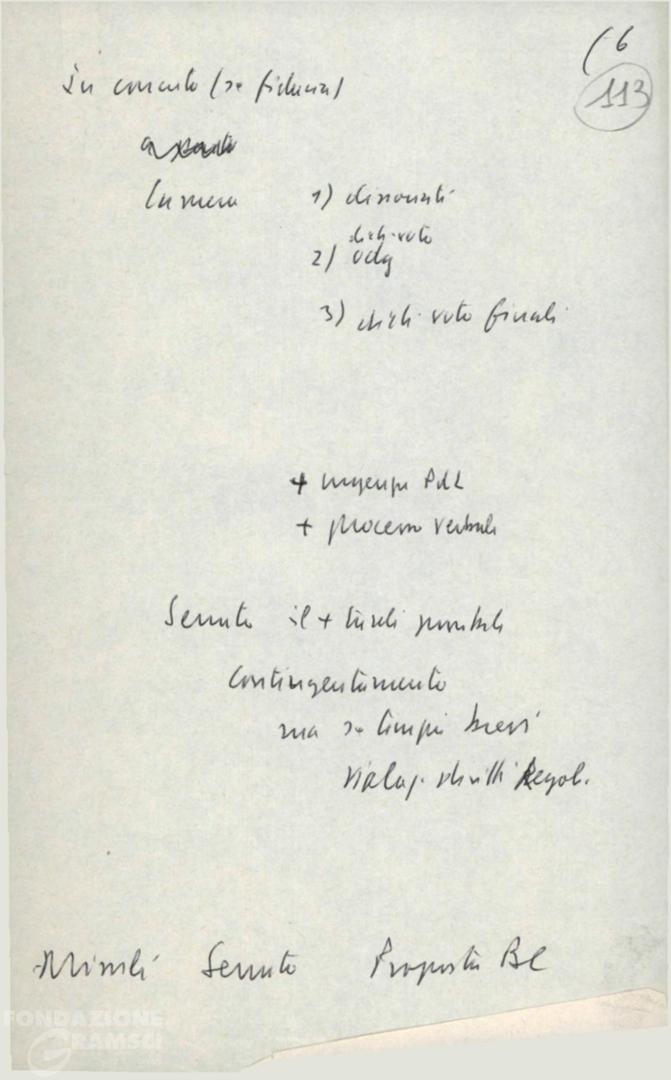 (6
113
In concreto (se fiducia)
Camera 1) dissociati
dich. voto
2) odg
3) dich. voto finali
+ urgenza PdL
+ processo verbale
Senato il + tardi possibile
Contingentamento
ma se tempi brevi
violaz. diritti Regol.
Senato Proposta
FONDAZIONE
GRAMSCI